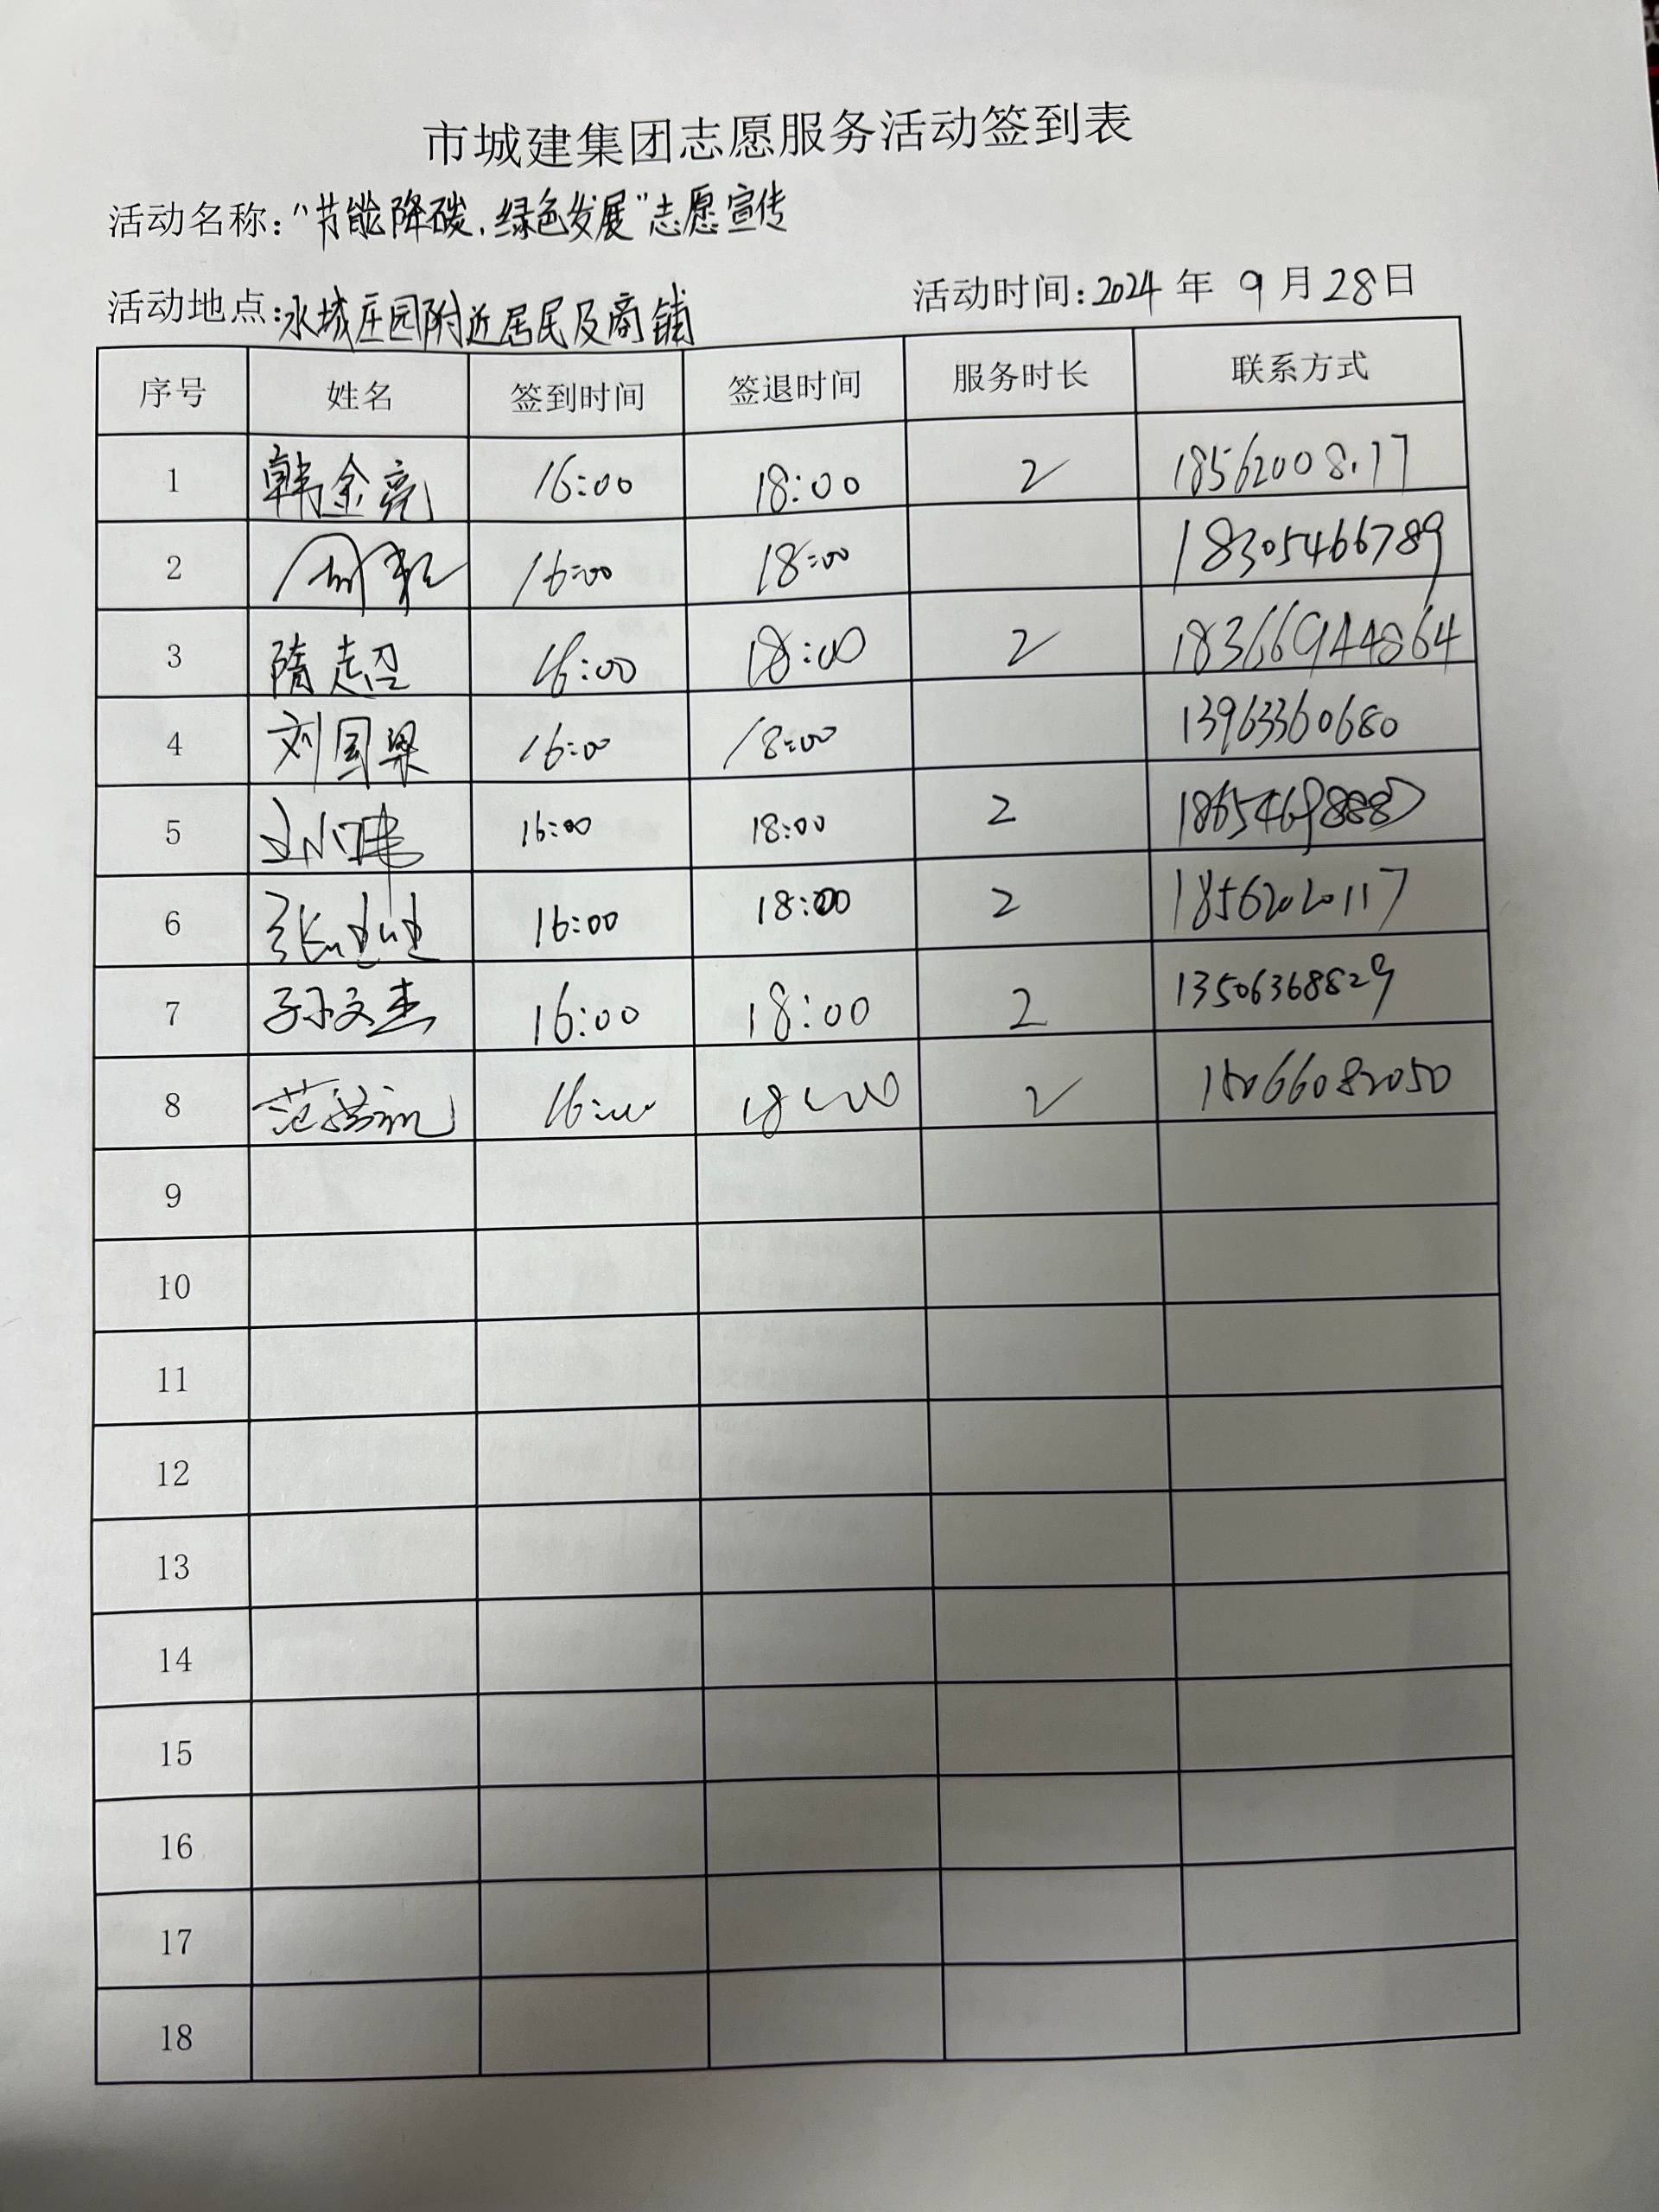 市城建集团志愿服务活动签到表
活动名称:“节能降碳,绿色发展”志愿宣传
活动地点:水城庄园附近居民及商铺 活动时间:2024年9月28日
序号 姓名 签到时间 签退时间 服务时长 联系方式
1 韩金亮 16:00 18:00 2
2 16:00 18:00 18305466789
3 隋超 16:00 18:00 2 18366944864
4 刘国梁 16:00 18:00 13963360680
5 16:00 18:00 2
6 16:00 18:00 2 18562020117
7 孙文杰 16:00 18:00 2 13506368829
8 16:00 18:00 2 15066082050
9
10
11
12
13
14
15
16
17
18